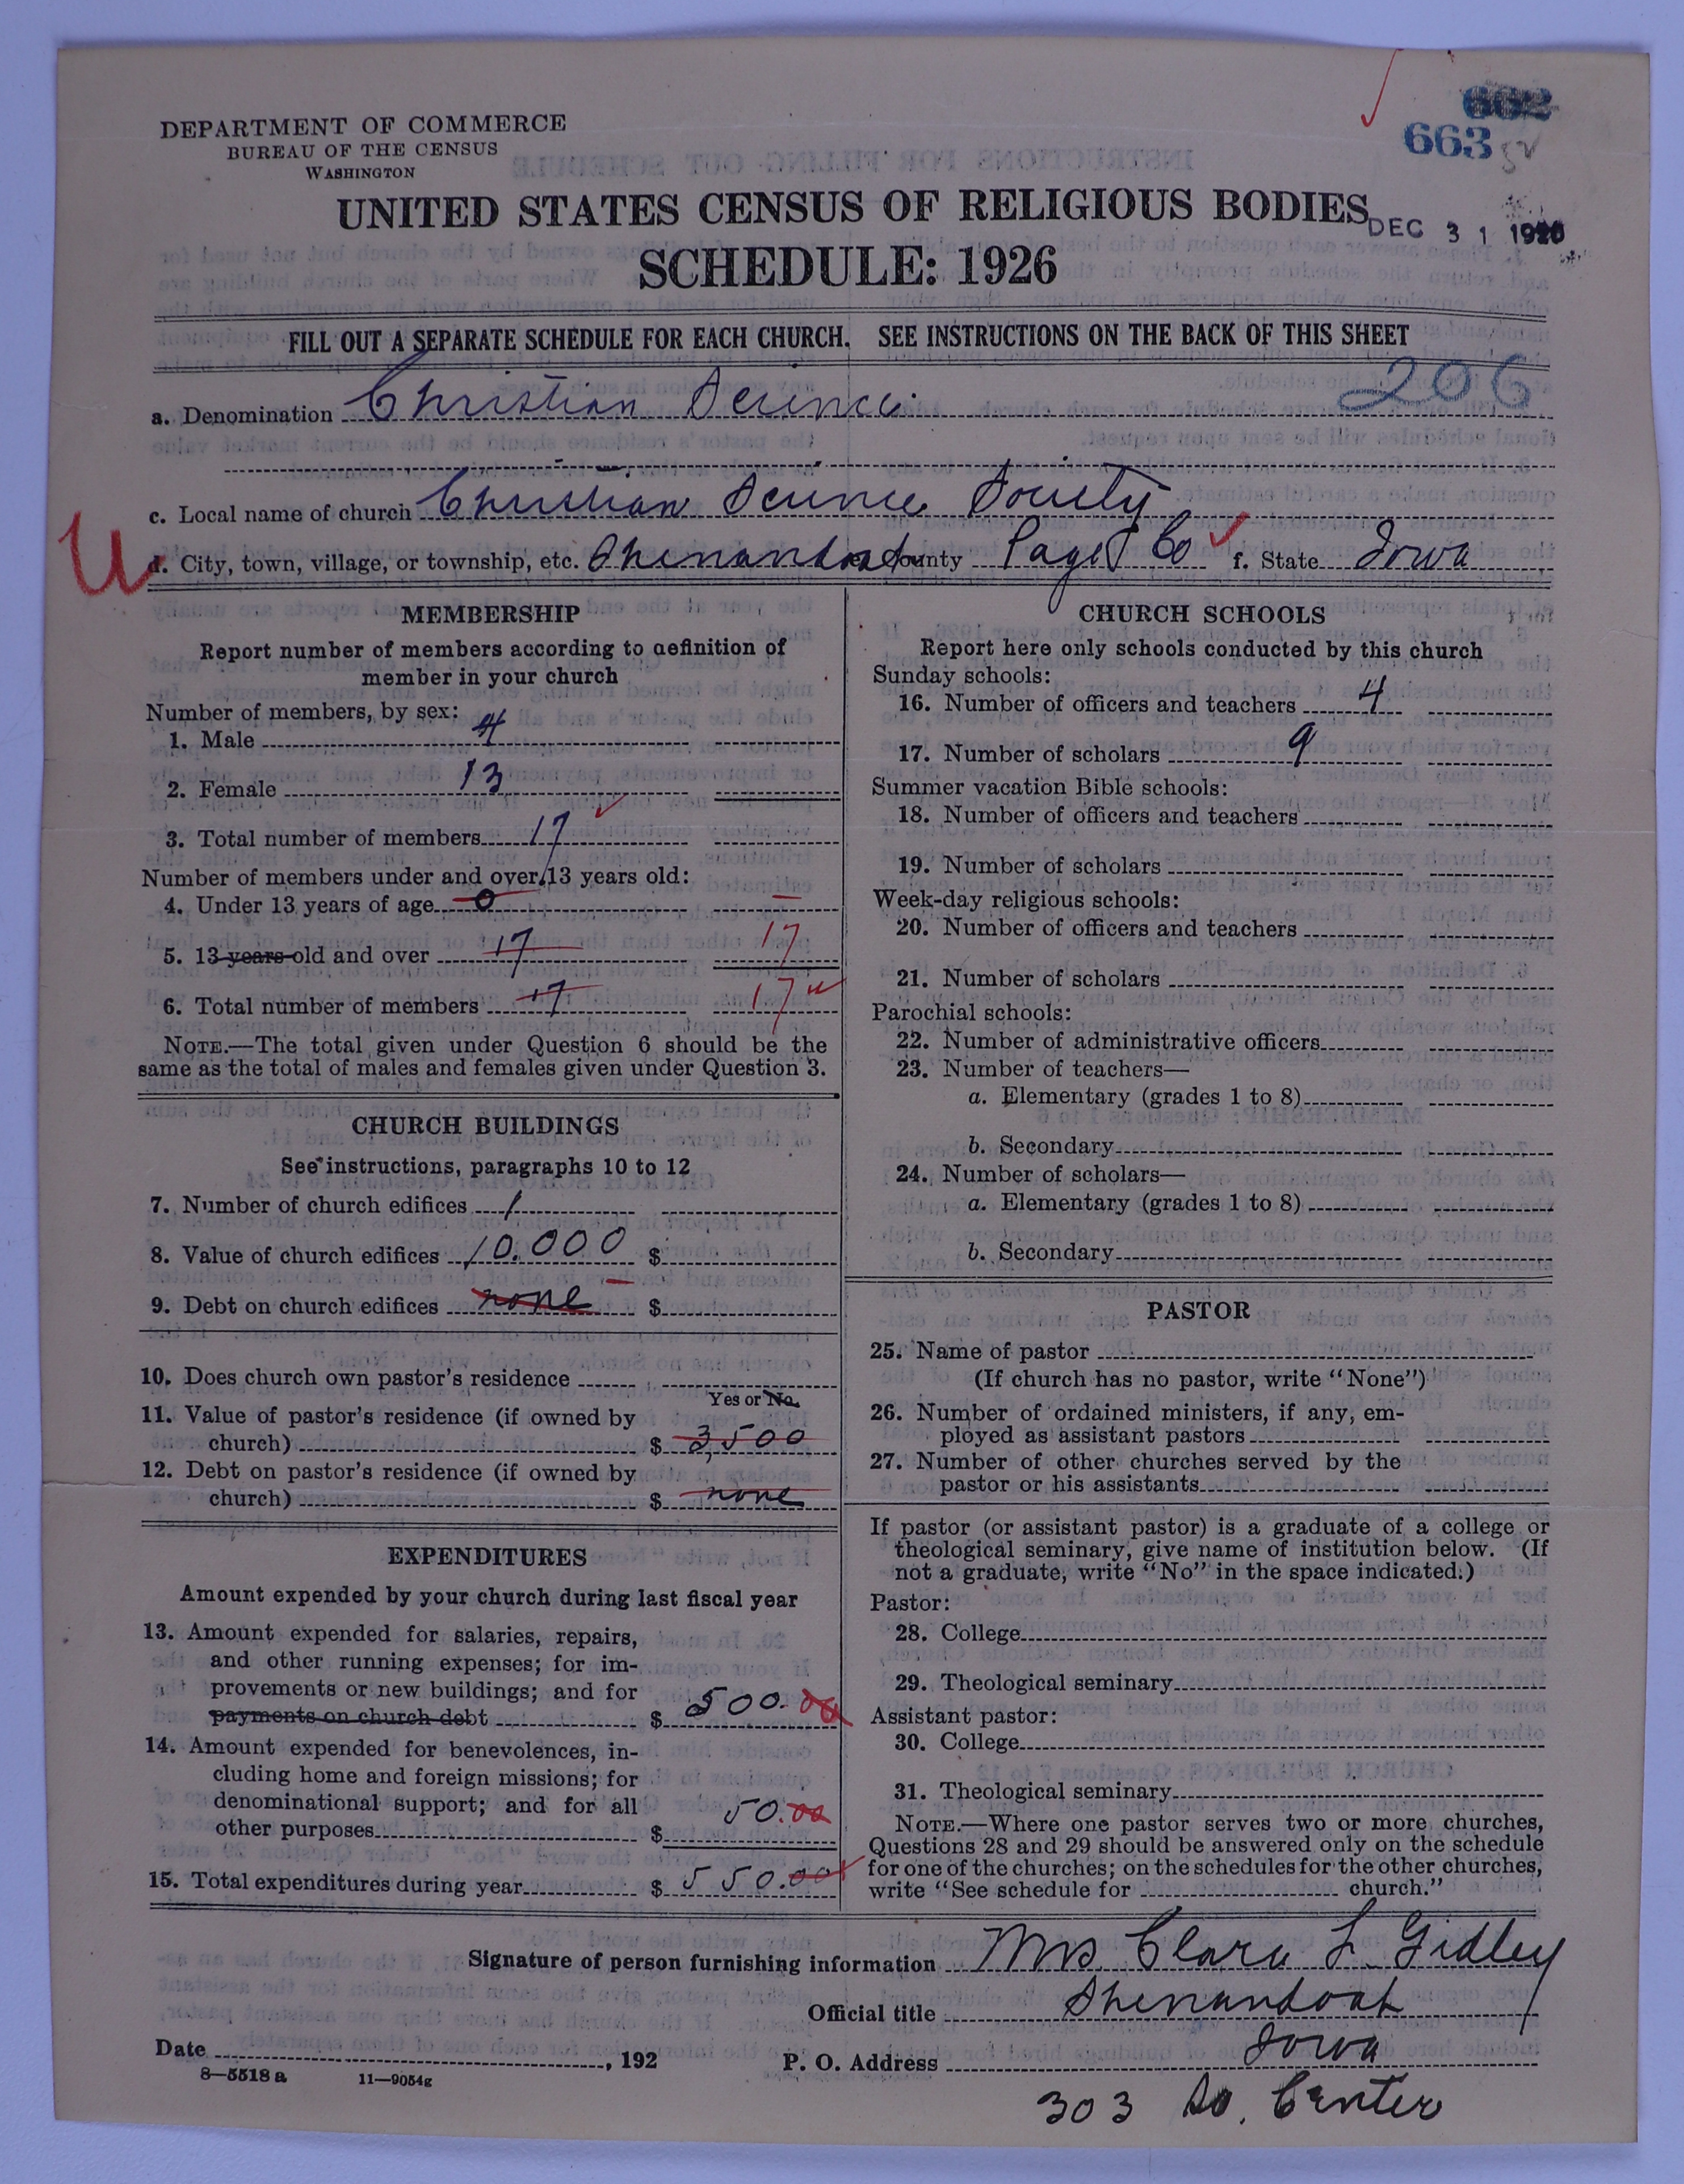 DEPARTMENT OF COMMERCE
BUREAU OF THE CENSUS
WASHINGTON
602
663
UNITED STATES CENSUS OF RELIGIOUS BODIES
DEC 31 1926
SCHEDULE: 1926
FILL OUT A SEPARATE SCHEDULE FOR EACH CHURCH. SEE INSTRUCTIONS ON THE BACK OF THIS SHEET
206
a. Denomination Christian Science
c. Local name of church Christian Science Society
d. City, town, village, or township, etc. Shenandoah e. County Page Co f. State Iowa
MEMBERSHIP
Report number of members according to definition of
member in your church
Number of members, by sex:
1. Male 4
2. Female 13
3. Total number of members 17
Number of members under and over 13 years old:
4. Under 13 years of age 0 –
5. 13 years old and over 17 17
6. Total number of members 17 17
NOTE.—The total given under Question 6 should be the
same as the total of males and females given under Question 3.
CHURCH BUILDINGS
See instructions, paragraphs 10 to 12
7. Number of church edifices 1
8. Value of church edifices 10.000 $
9. Debt on church edifices none $
10. Does church own pastor's residence
Yes or No.
11. Value of pastor's residence (if owned by
church) $ 3,500
12. Debt on pastor's residence (if owned by
church) $ none
EXPENDITURES
Amount expended by your church during last fiscal year
13. Amount expended for salaries, repairs,
and other running expenses; for im-
provements or new buildings; and for
payments on church debt $ 500.00
14. Amount expended for benevolences, in-
cluding home and foreign missions; for
denominational support; and for all
other purposes $ 50.00
15. Total expenditures during year $ 550.00
CHURCH SCHOOLS
Report here only schools conducted by this church
Sunday schools:
16. Number of officers and teachers 4
17. Number of scholars 9
Summer vacation Bible schools:
18. Number of officers and teachers
19. Number of scholars
Week-day religious schools:
20. Number of officers and teachers
21. Number of scholars
Parochial schools:
22. Number of administrative officers
23. Number of teachers—
a. Elementary (grades 1 to 8)
b. Secondary
24. Number of scholars—
a. Elementary (grades 1 to 8)
b. Secondary
PASTOR
25. Name of pastor
(If church has no pastor, write "None")
26. Number of ordained ministers, if any, em-
ployed as assistant pastors
27. Number of other churches served by the
pastor or his assistants
If pastor (or assistant pastor) is a graduate of a college or
theological seminary, give name of institution below. (If
not a graduate, write "No" in the space indicated.)
Pastor:
28. College
29. Theological seminary
Assistant pastor:
30. College
31. Theological seminary
NOTE.—Where one pastor serves two or more churches,
Questions 28 and 29 should be answered only on the schedule
for one of the churches; on the schedules for the other churches,
write "See schedule for church."
Signature of person furnishing information Mrs Clara L Gidley
Official title Shenandoah
Iowa
Date , 192 P. O. Address
303 So. Center
8—5518 a 11—9054g